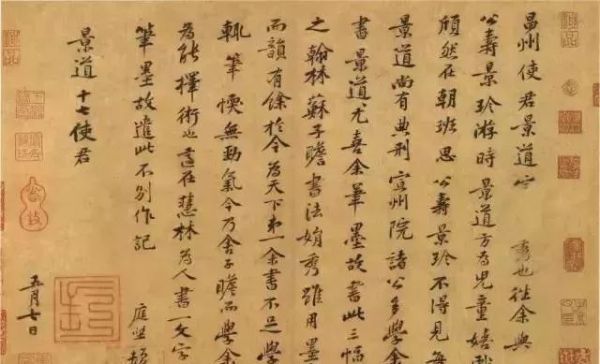 昌州使君景道宗秀也往余與
公壽景珍游時景道方為兒童嬉
頎然在朝班思公壽景珍不得見每
景道尚有典刑宣州院諸公多學余
書景道尤喜余筆墨故書此三幅
之翰林蘇子瞻書法娟秀雖用墨
而韻有餘於今為天下第一余書不足學
輒筆愞無勁氣今乃舍子瞻而學余
為能擇術也適在慧林為人書一文字
筆墨故遣此不別作記
庭堅頓
景道十七使君
五月七日